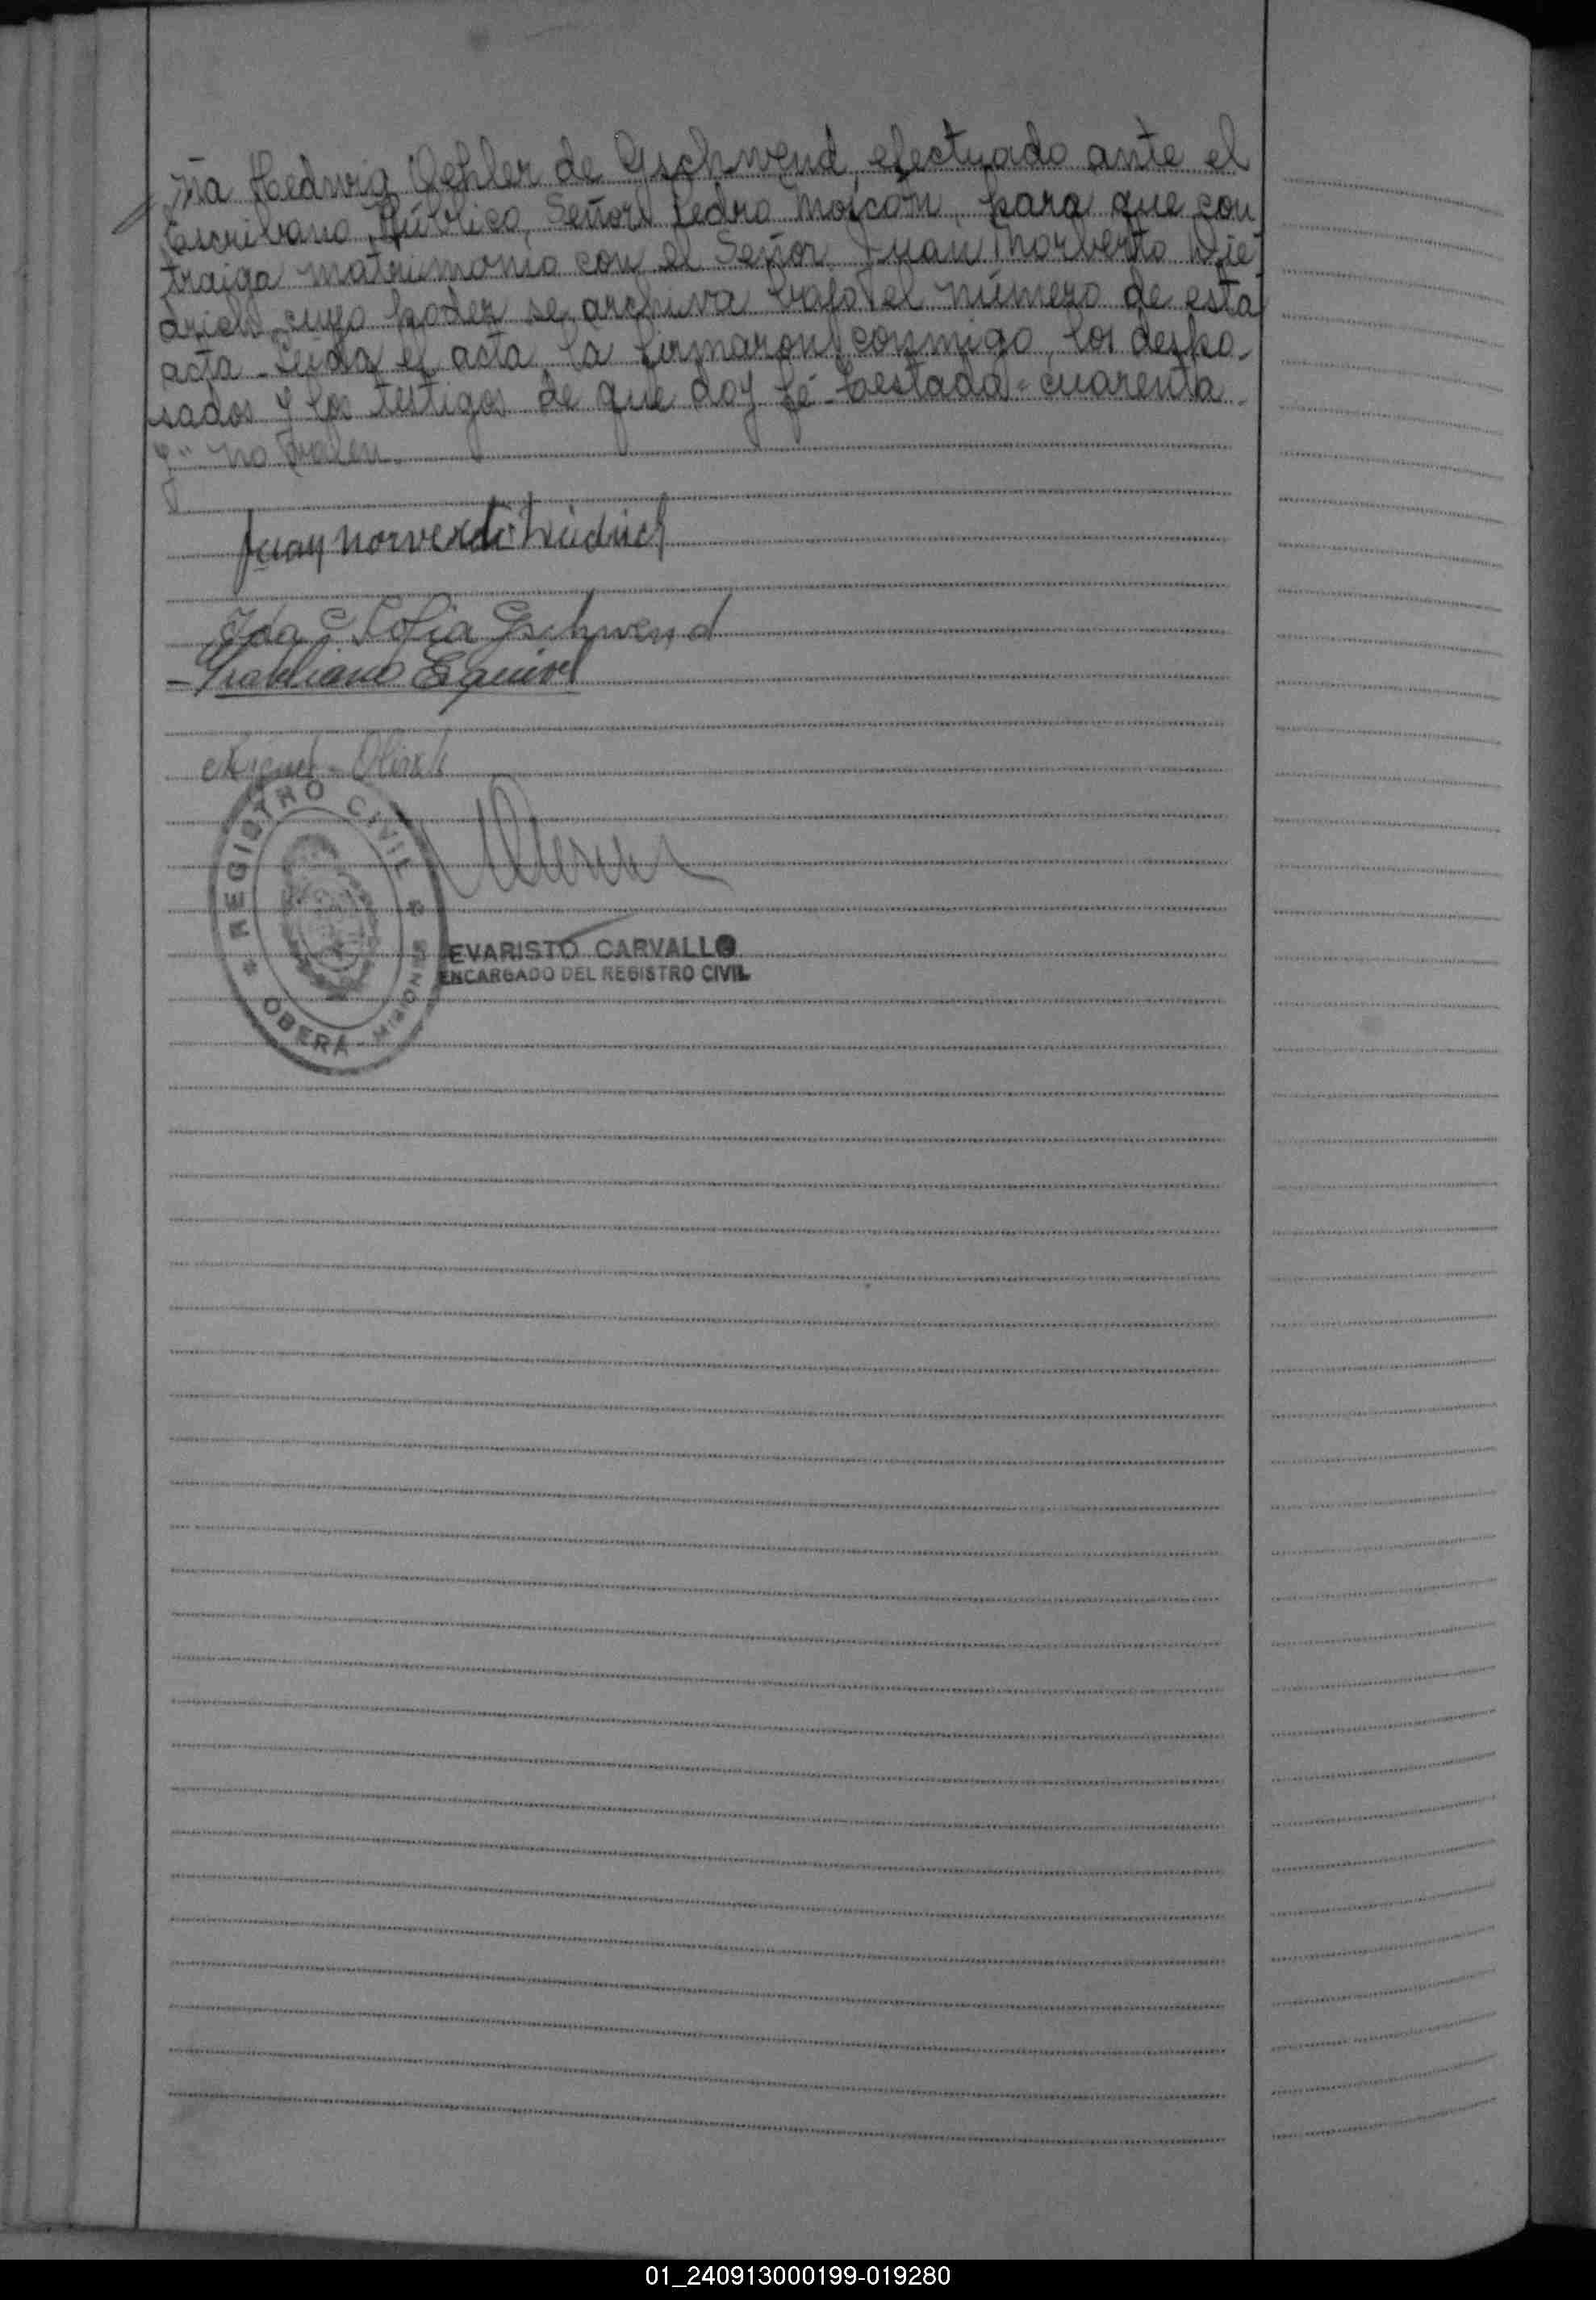 ña Hedwig Oehler de Gschwend, efectuado ante el
Escribano Público, Señor Pedro Moscón, para que con
traiga matrimonio con el Señor Juan Norberto Die
drich, cuyo poder se archiva bajo el número de esta
acta - Leida el acta, la firmaron conmigo, los despo-
sados y los testigos de que doy fé - Testado = cuarenta -
y" no valen
Juan Norverto
Ida Sofia Gschwend
Esquivel
Miguel
REGISTRO CIVIL
OBERÁ - MISIONES
EVARISTO CARVALLO
ENCARGADO DEL REGISTRO CIVIL
01_240913000199-019280